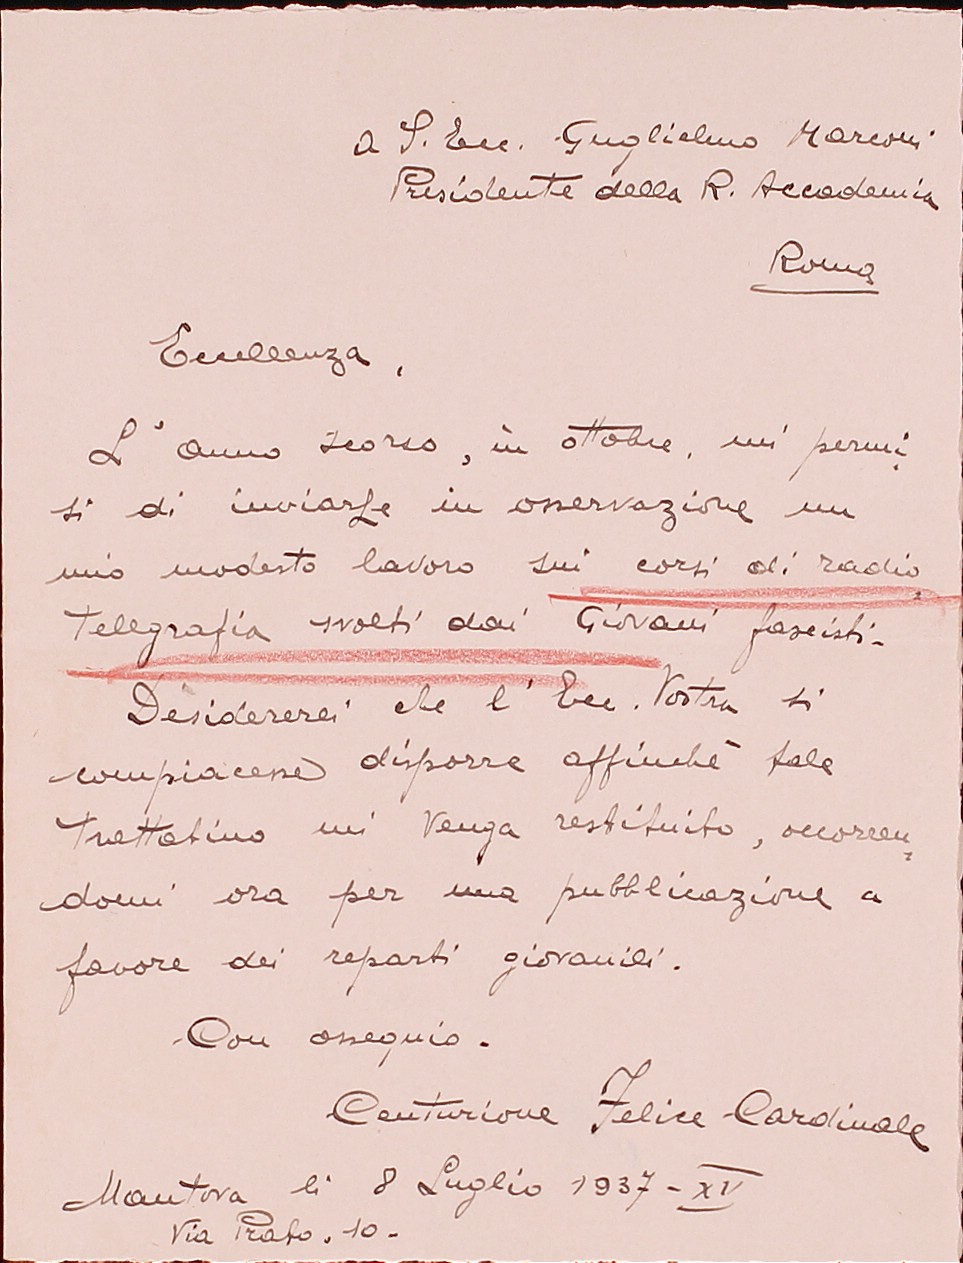 A S. Ecc. Guglielmo Marconi
Presidente della R. Accademia
Roma
Eccellenza,
L'anno scorso, in ottobre, mi permi-
si di inviarLe in osservazione un
mio modesto lavoro sui corsi di radio-
telegrafia svolti dai Giovani fascisti-
Desidererei che l'Ecc. Vostra si
compiacesse disporre affinchè tale
trattatino mi venga restituito, occorren-
domi ora per una pubblicazione a
favore dei reparti giovanili.
Con ossequio.
Centurione Felice Cardinale
Mantova li 8 Luglio 1937-XV
Via Prato. 10-